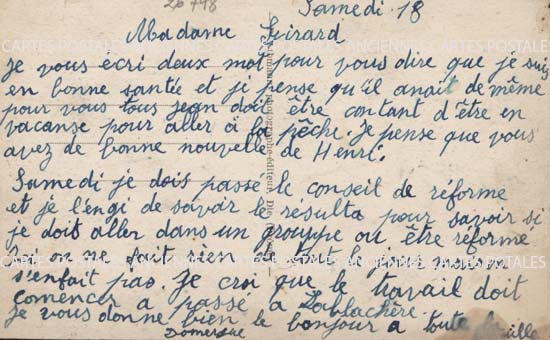 26748
Samedi 18
Madame Guirard
Je vous écri deux mot pour vous dire que je suis
en bonne santée et ji pense qu'il anait de même
pour vous tous jean doit être contant d'être en
vacanse pour aller à la pêche. Je pense que vous
avez de bonne nouvelle de Henri.
Samedi je dois passé le conseil de réforme
et je l'engi de savoir le résulta pour savoir si
je doit aller dans un grouppe ou être réforme
Ici on ne fait rien et tout le jour on
s'enfait pas. Je croi que le travail doit
comencer a passé a Lablachère.
je vous donne bien le bonjour a toute la
famille
Domergue
CARTES POSTALES ANCIENNES